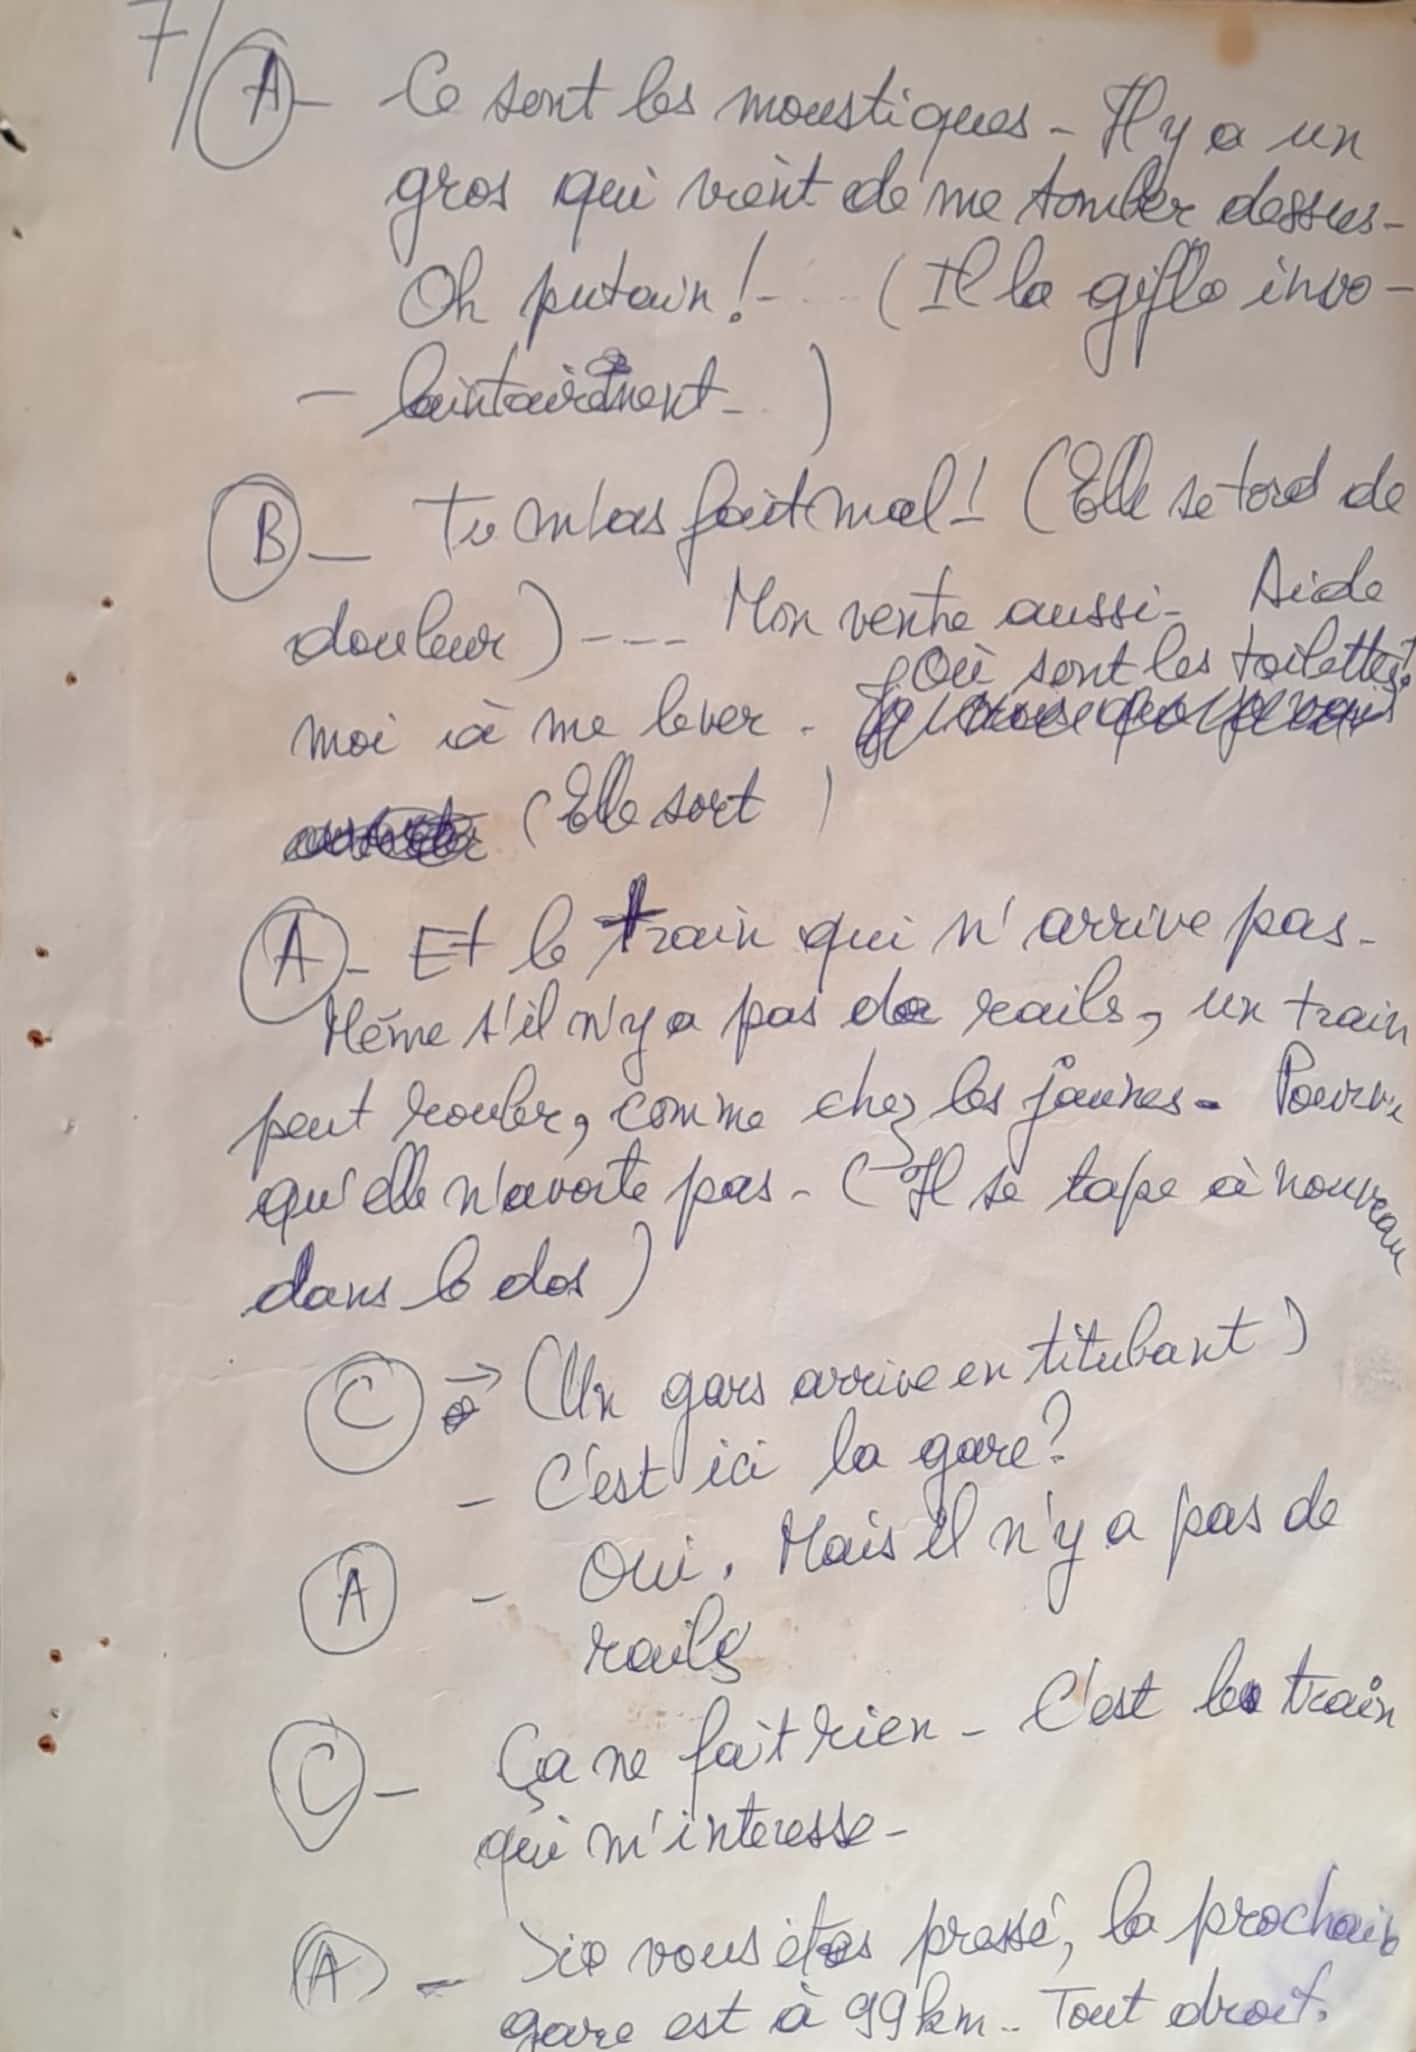 7/ A - Ce sont les moustiques - Il y a un
gros qui vient de me tomber dessus -
Oh putain ! - .. (Il la gifle invo -
- lontairement - )
B - Tu m'as fait mal ! (Elle se tord de
douleur) ---- Mon ventre aussi - Aide
Où sont les toilettes !
moi à me lever -
(Elle sort )
A - Et le train qui n'arrive pas -
Même s'il n'y a pas de rails, un train
peut rouler, comme chez les jaunes - Pourvu
qu'elle n'avorte pas - (Il se tape à nouveau
dans le dos )
C → (Un gars arrive en titubant )
- C'est ici la gare ?
A - Oui. Mais il n'y a pas de
rails
C - Ça ne fait rien - C'est le train
qui m'interesse -
A - Si vous êtes pressé, la prochaine
gare est à 99 km - Tout droit.